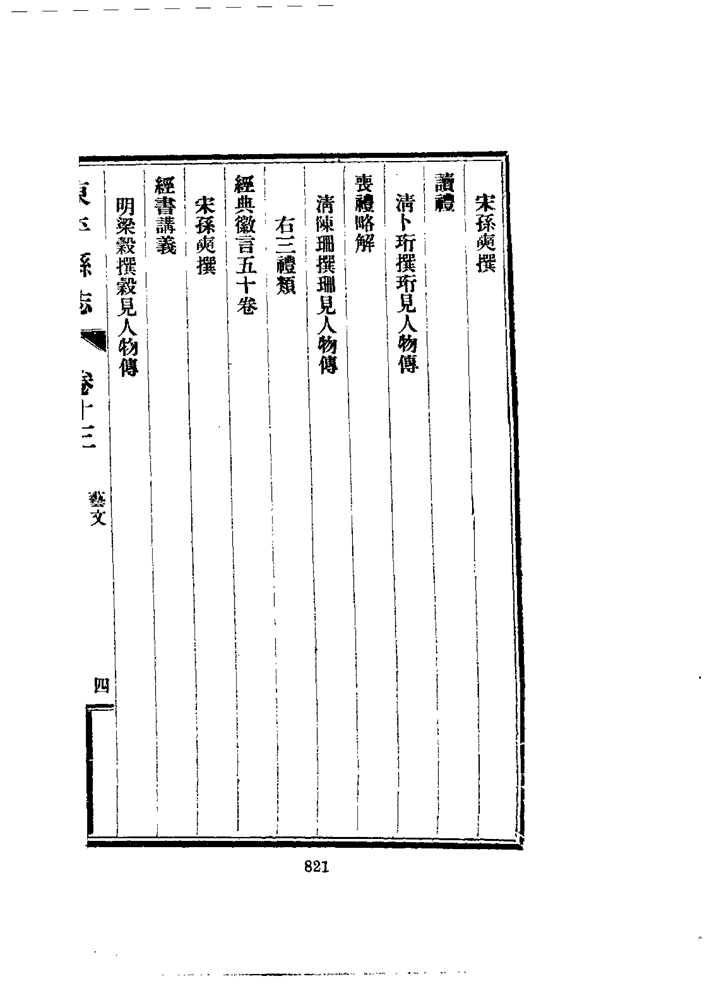 宋孫奭撰
讀禮
清卜珩撰珩見人物傳
喪禮略解
清陳珊撰珊見人物傳
右三禮類
經典徽言五十卷
宋孫奭撰
經書講義
明梁穀撰穀見人物傳
東平縣志 卷十三 藝文 四
821